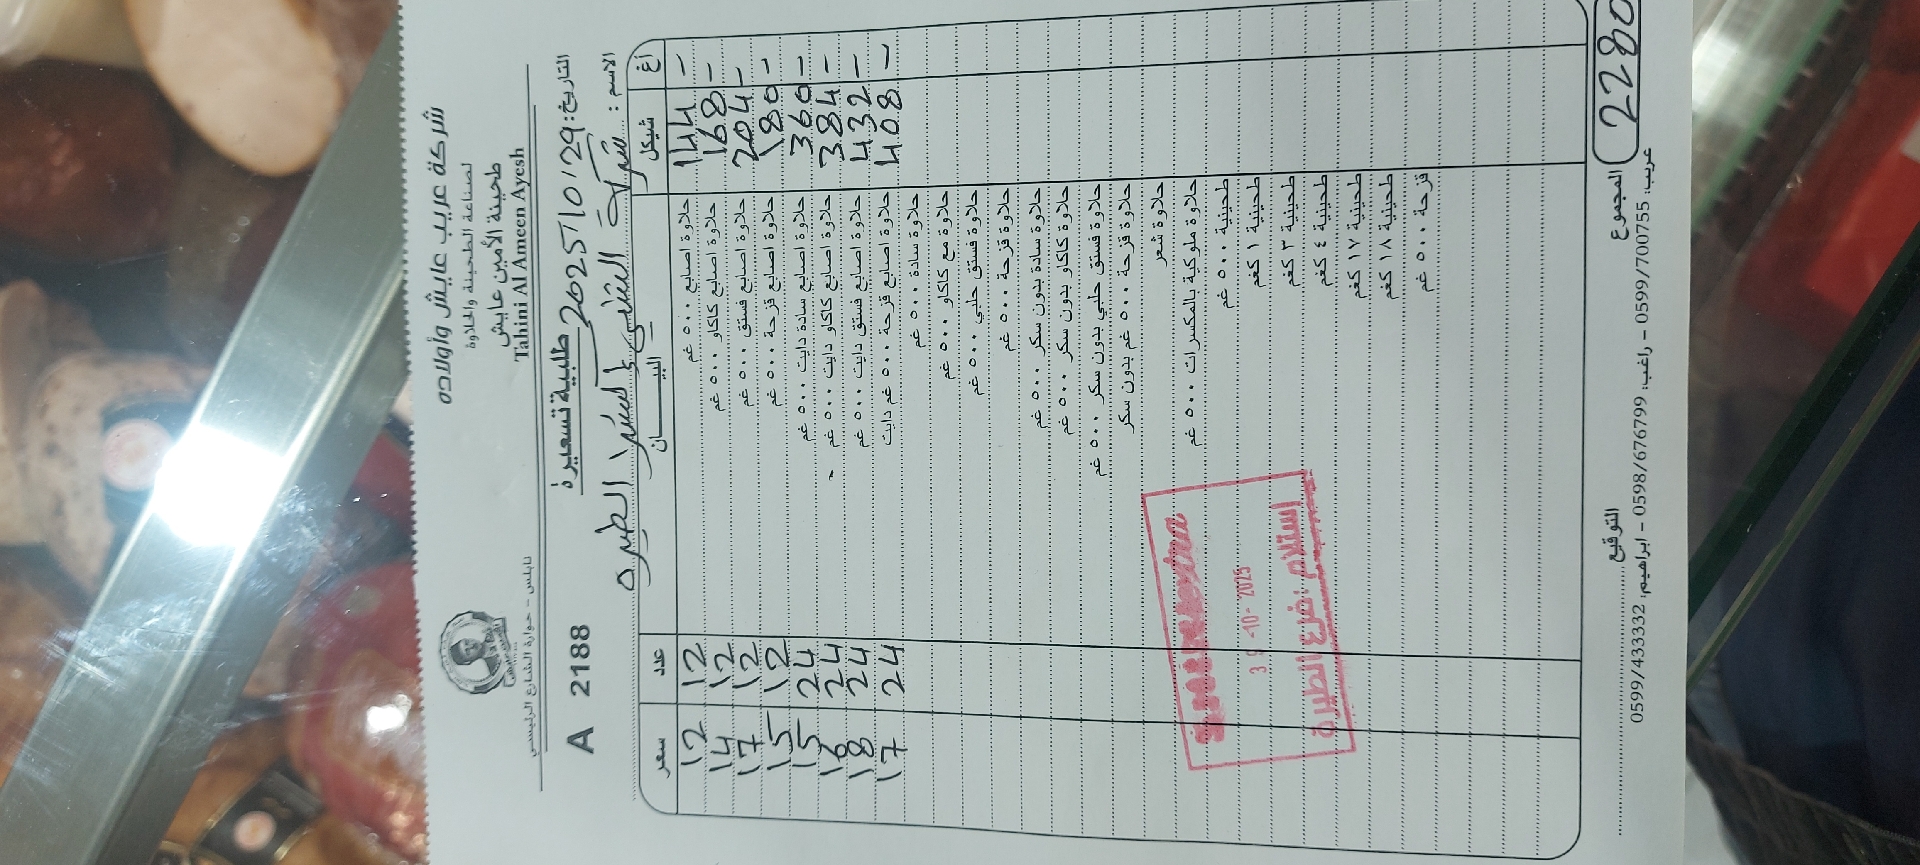 شركة عريب عايش وأولاده
لصناعة الطحينة والحلاوة
طحينة الأمين عايش
Tahini Al Ameen Ayesh
نابلس - حوارة الشارع الرئيسي
التاريخ: 2025/10/29
طلبية تسعيرة
A 2188
الاسم: شركة التفليس اكسترا الطيرة
أغ شيكل البيـــــان عدد سعر
- 144 حلاوة اصابع ٥٠٠ غم 12 12
- 168 حلاوة اصابع كاكاو ٥٠٠ غم 12 14
- 204 حلاوة اصابع فستق ٥٠٠ غم 12 17
- 180 حلاوة اصابع قزحة ٥٠٠ غم 12 15
- 360 حلاوة اصابع سادة دايت ٥٠٠ غم 24 15
- 384 حلاوة اصابع كاكاو دايت ٥٠٠ غم 24 16
- 432 حلاوة اصابع فستق دايت ٥٠٠ غم 24 18
- 408 حلاوة اصابع قزحة ٥٠٠ غم دايت 24 17
حلاوة سادة ٥٠٠ غم
حلاوة مع كاكاو ٥٠٠ غم
حلاوة فستق حلبي ٥٠٠ غم
حلاوة قزحة ٥٠٠ غم
حلاوة سادة بدون سكر ٥٠٠ غم
حلاوة كاكاو بدون سكر ٥٠٠ غم
حلاوة فستق حلبي بدون سكر ٥٠٠ غم
حلاوة قزحة ٥٠٠ غم بدون سكر
حلاوة شعر
حلاوة ملوكية بالمكسرات ٥٠٠ غم
طحينية ٥٠٠ غم
طحينية ١ كغم
طحينية ٣ كغم
طحينية ٤ كغم
طحينية ١٧ كغم
طحينية ١٨ كغم
قزحة ٥٠٠ غم
-10- 2025
إستلام: فرع الطيرة
المجموع 2280
التوقيع
عريب: 0599/700755 - راغب: 0598/676799 - ابراهيم: 0599/433332